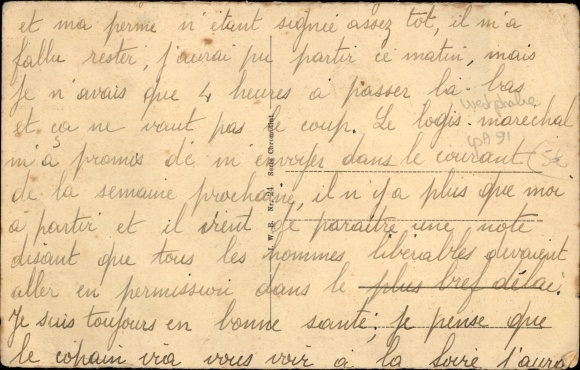 et ma perme n'étant signée assez tôt, il m'a
fallu rester, j'aurai pu partir ce matin, mais
je n'avais que 4 heures à passer là-bas
et ça ne vaut pas le coup. Le logis-marechal
m'a promis de m'envoyer dans le courant
de la semaine prochaine, il n'y a plus que moi
à partir et il vient de paraître une note
disant que tous les hommes libérables devaient
aller en permission dans le plus bref délai.
Je suis toujours en bonne santé; je pense que
le copain ira vous voir à la Soire j'aurai
Westphalia
J. W. B. Nr. 24 Serie Chromolitho